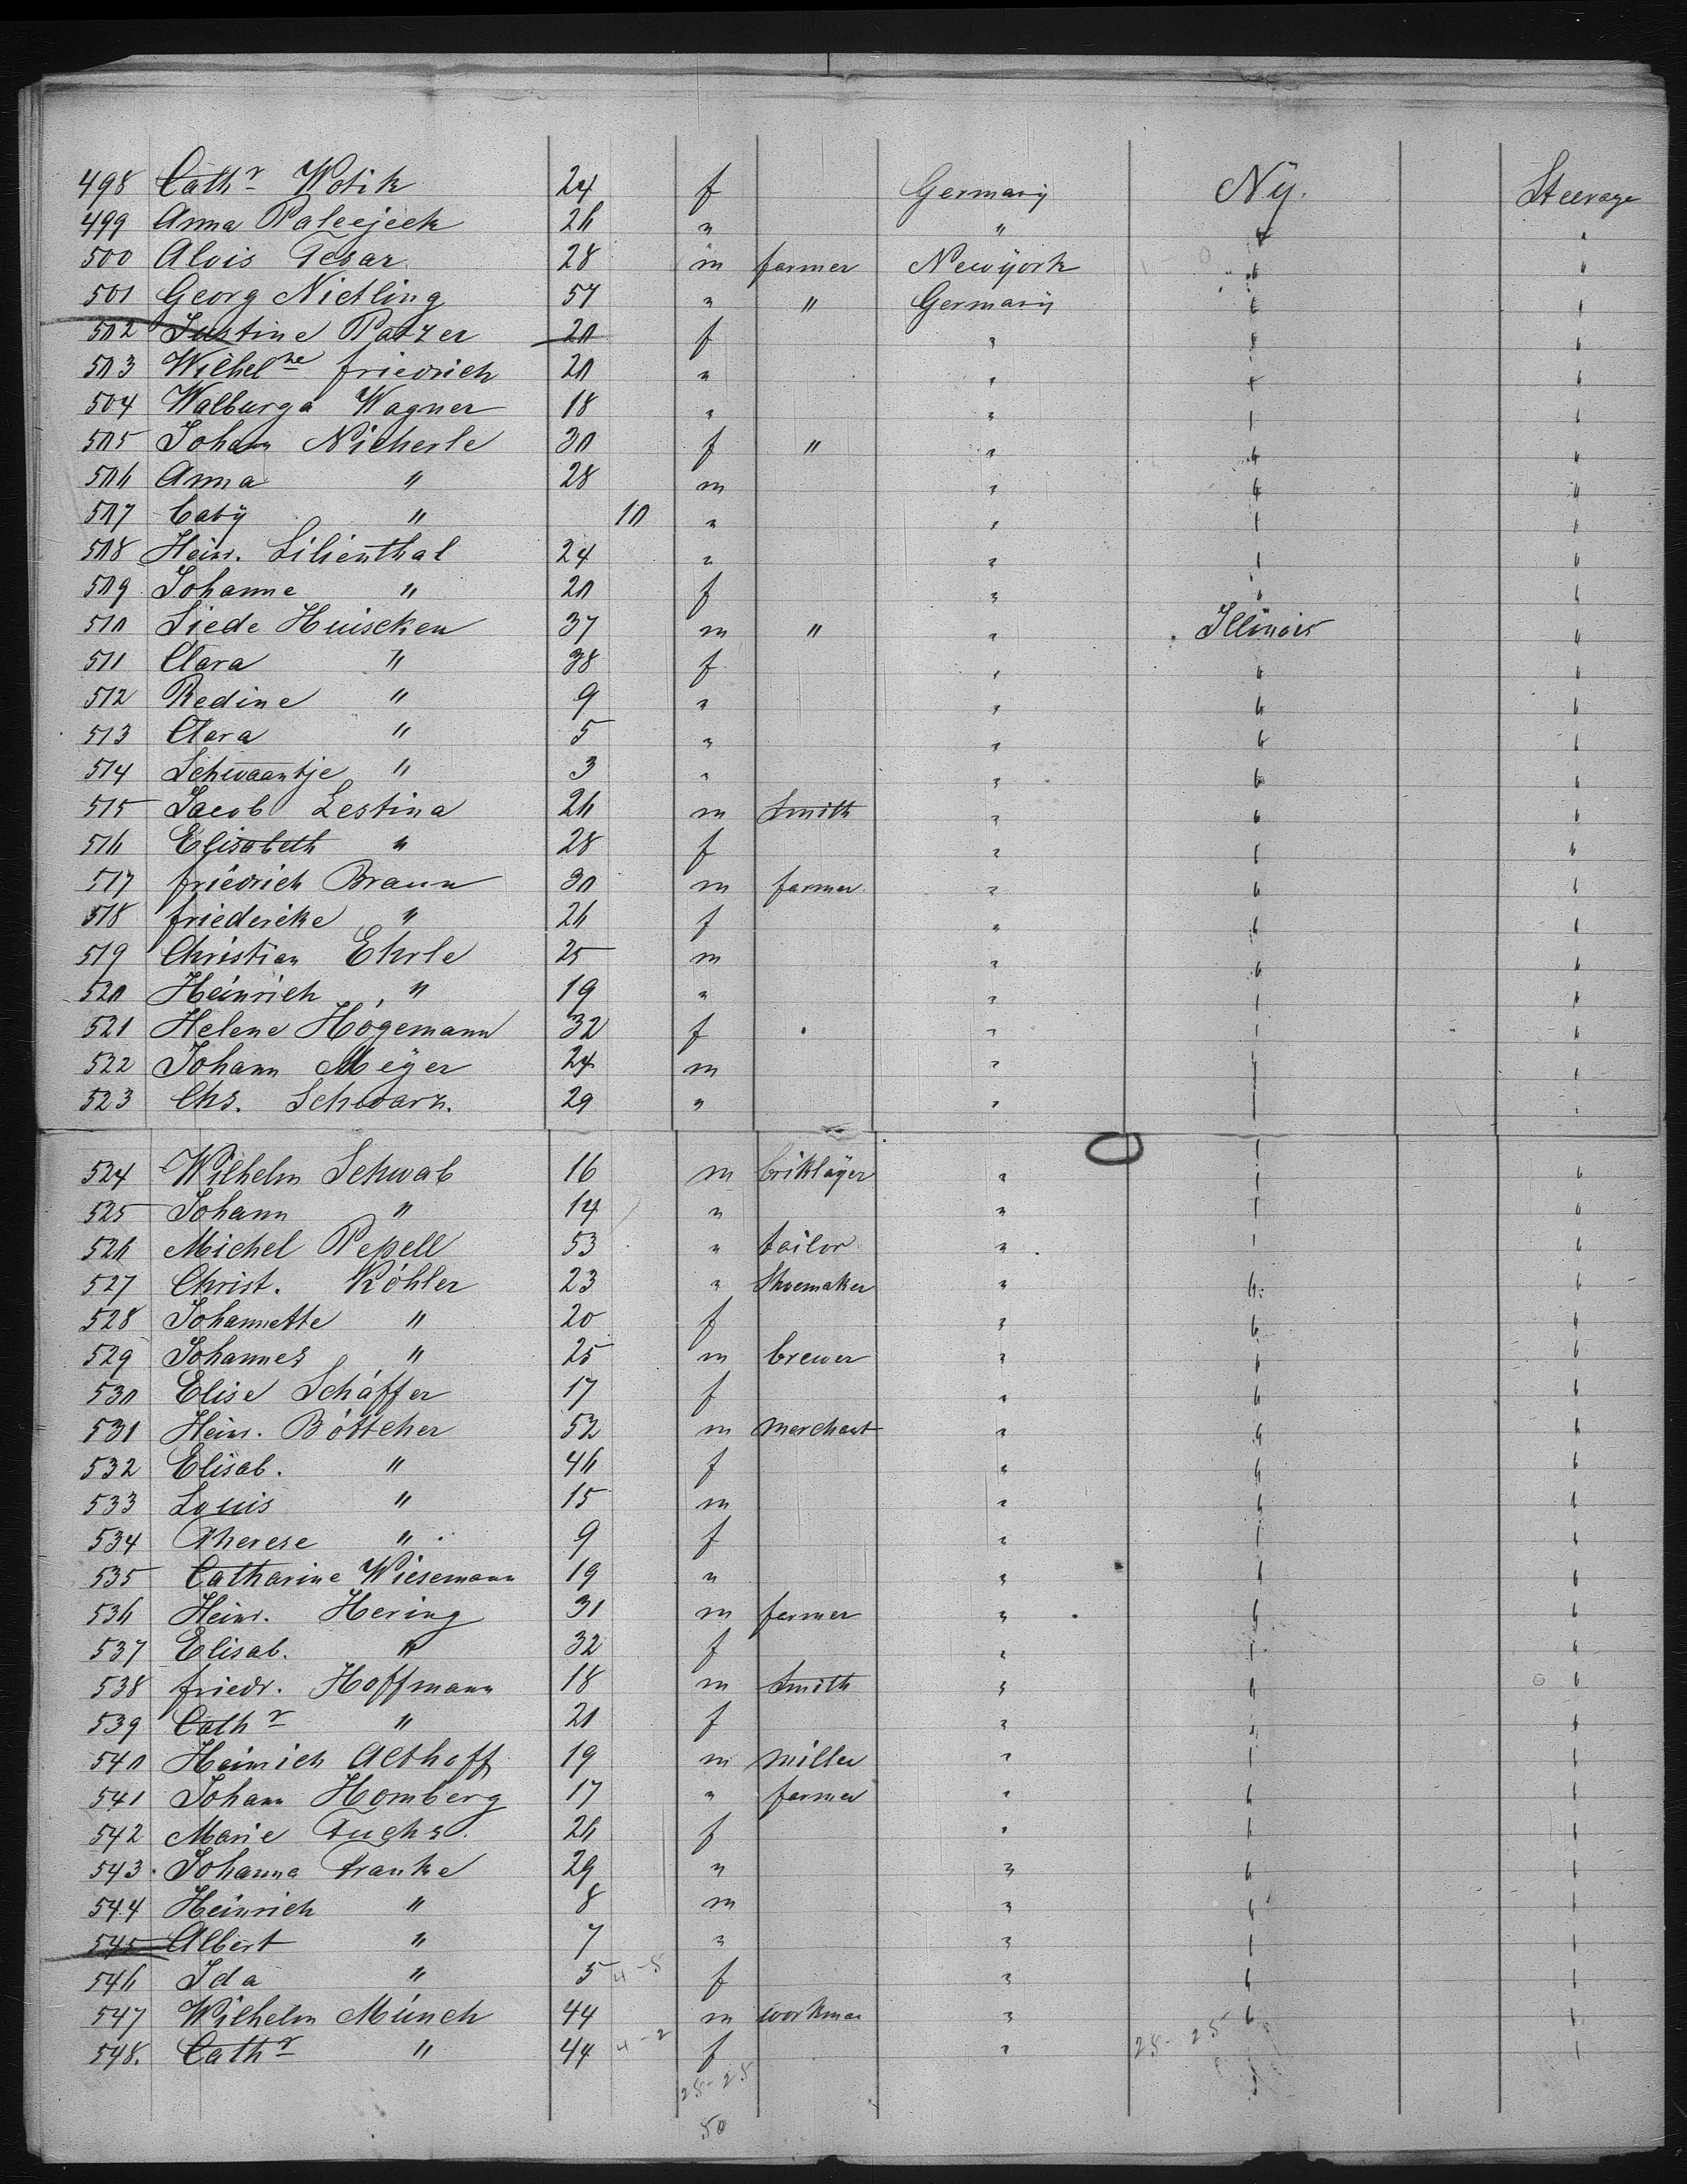 498 Cathr Wotik 24 f Germany Ny. Steerage
499 Anna Paleejeck 26 " " " "
500 Alois Tesar 28 m farmer Newyork " "
501 Georg Nietling 54 " " Germany " "
502 Justine Patzer 20 f " " "
503 Wilhelne friedrich 20 " " " "
504 Walburga Wagner 18 " " " "
505 Johann Nicherle 30 f " " " "
506 Anna " 28 m " " "
507 baby " 10 " " " "
508 Heinr. Lilienthal 24 " " " "
509 Johanne " 20 f " " "
510 Siede Huiscken 37 m " " Illinois "
511 Clara " 38 f " " "
512 Redine " 9 " " " "
513 Clara " 5 " " " "
514 Schwaantje " 3 " " " "
515 Jacob Lestina 26 m Smith " " "
516 Elisabeth " 28 f " " "
517 friedrich Braun 30 m farmer " " "
518 friedericke " 26 f " " "
519 Christian Ehrle 25 m " " "
520 Heinrich " 19 " " " "
521 Helene Hogemann 32 f " " "
522 Johann Meyer 24 m " " "
523 Chs. Schwarz. 29 " " " "
524 Wilhelm Schwab 16 m briklayer " " "
525 Johann " 14 " " " "
526 Michel Pepell 53 " tailor " " "
527 Christ. Köhler 23 " Shoemaker " " "
528 Johannette " 20 f " " "
529 Johannes " 25 m brewer " " "
530 Elise Schäffer 17 f " " "
531 Heinr. Böttcher 52 m merchant " " "
532 Elisab. " 46 f " " "
533 Louis " 15 m " " "
534 Therese " 9 f " " "
535 Catharine Wiesemann 19 " " " "
536 Heinr. Hering 31 m farmer " " "
537 Elisab. " 32 f " " "
538 friedr. Hoffmann 18 m Smith " " "
539 Cathr " 21 f " " "
540 Heinrich Althoff 19 m miller " " "
541 Johann Homberg 17 " farmer " " "
542 Marie Fuchs. 26 f " " "
543 Johanna Franke 29 " " " "
544 Heinrich " 8 m " " "
545 Albert " 7 " " " "
546 Ida " 5 4-5 f " " "
547 Wilhelm Münch 44 m workman " " "
548. Cathr " 44 4-2 f " 25-25 "
25-25
50